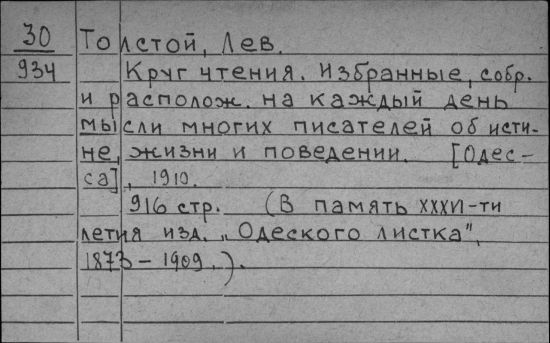 30
934
Толстой, Лев.
Круг чтения. Избранные, собр.
и располож. на каждый день
мысли многих писателей об исти-
не, жизни и поведении. [Одес-
са], 1910.
916 стр. (В память XXXVI-ти
летия изд. „Одеского листка",
1873-1909.).